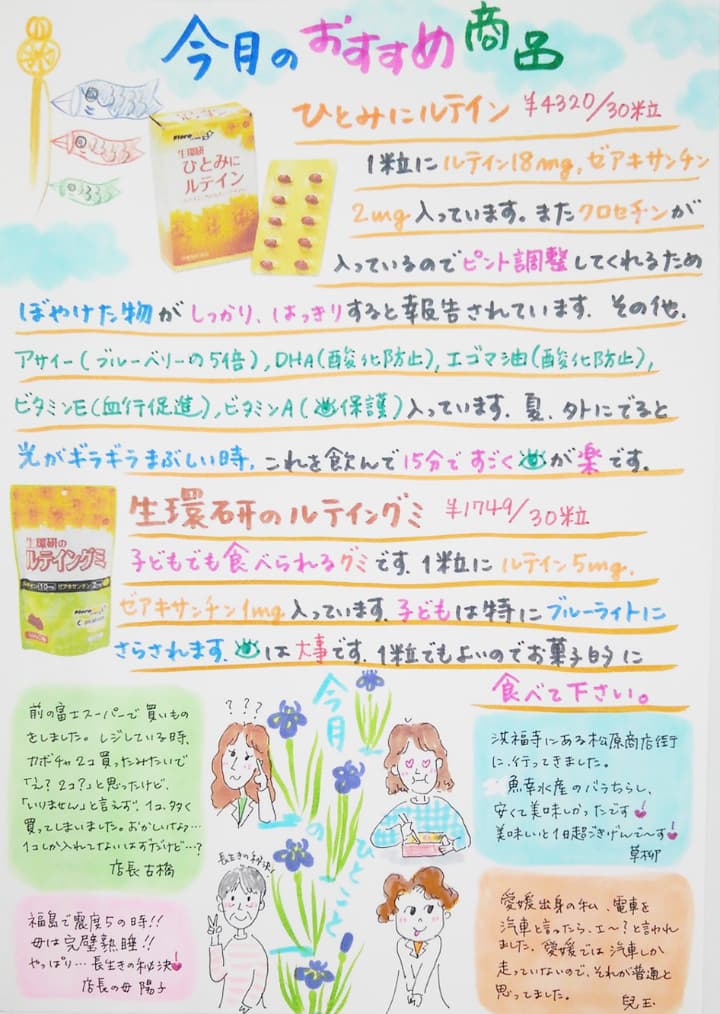 今月のおすすめ商品
ひとみにルテイン ¥4320/30粒
生環研
ひとみに
ルテイン
1粒にルテイン18mg,ゼアキサンチン
2mg入っています。またクロセチンが
入っているのでピント調整してくれるため
ぼやけた物がしっかり、はっきりすると報告されています。その他、
アサイー(ブルーベリーの5倍),DHA(酸化防止),エゴマ油(酸化防止),
ビタミンE(血行促進),ビタミンA(保護)入っています。夏、外にでると
光がギラギラまぶしい時、これを飲んで15分ですごくが楽です。
生環研のルテイングミ ¥1749/30粒
生環研の
ルテイングミ
子どもでも食べられるグミです。1粒にルテイン5mg.
ゼアキサンチン1mg入っています。子どもは特にブルーライトに
さらされます。は大事です。1粒でもよいのでお菓子的に
食べて下さい。
今月のひとこと
前の富士スーパーで買いもの
をしました。レジしている時、
カボチャ2コ買ったみたいで
「え?2コ?」と思ったけど、
「いりません」と言えず、1コ多く
買ってしまいました。おかしいなぁ…
1コしか入れてないはずだけど…?
店長 古橋
???
洪福寺にある松原商店街
に、行ってきました。
魚幸水産のバラちらし、
安くて美味しかったです
美味しいと1日超ごきげんで〜す
草柳
長生きの秘決!
福島で震度5の時!!
母は完璧熟睡!!
やっぱり…長生きの秘決
店長の母 陽子
愛媛出身の私、電車を
汽車と言ったら、エ〜?と言われ
ました。愛媛では汽車しか
走っていないので、それが普通と
思ってました。
兒玉